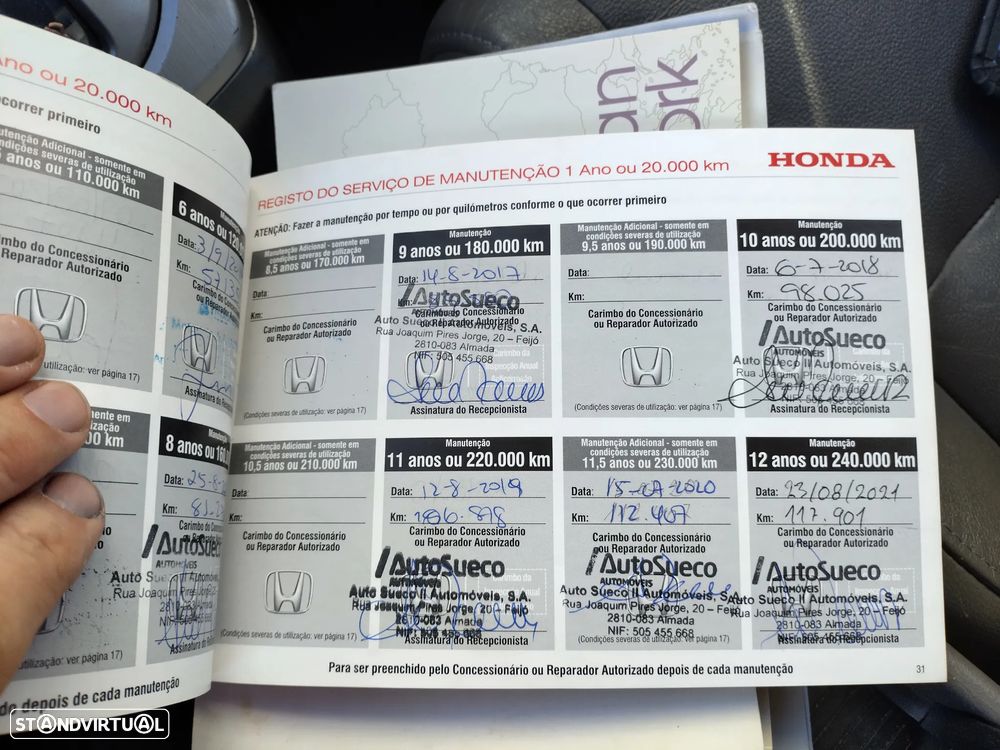 Ano ou 20.000 km
ocorrer primeiro
Manutenção Adicional - somente em
condições severas de utilização
anos ou 110.000 km
Carimbo do Concessionário
ou Reparador Autorizado
utilização: ver página 17)
6 anos ou 120
Data: 3/9/
Km:
Carimbo do Conces
ou Reparador Au
Assinatura do Rece
mente em
utilização
00 km
onário
rizado
utilização: ver página 17)
8 anos ou 160
Data: 25-8-
Km:
Carimbo do Con
ou Reparador
AutoSueco
AUTOMÓVEIS
Auto Sueco II
Rua Joaquim
2810-083
NIF:
Assinatura do R
do depois de cada manutenção
an
ork
HONDA
REGISTO DO SERVIÇO DE MANUTENÇÃO 1 Ano ou 20.000 km
ATENÇÃO: Fazer a manutenção por tempo ou por quilómetros conforme o que ocorrer primeiro
Manutenção Adicional - somente em
condições severas de utilização
8,5 anos ou 170.000 km
Data:
Km:
Carimbo do Concessionário
ou Reparador Autorizado
(Condições severas de utilização: ver página 17)
Manutenção
9 anos ou 180.000 km
Data: 14-8-2017
Km:
Carimbo do Concessionário
ou Reparador Autorizado
AutoSueco
Auto Sueco II Automóveis, S.A.
Rua Joaquim Pires Jorge, 20 – Feijó
2810-083 Almada
NIF: 505 455 668
Assinatura do Recepcionista
Manutenção Adicional - somente em
condições severas de utilização
9,5 anos ou 190.000 km
Data:
Km:
Carimbo do Concessionário
ou Reparador Autorizado
(Condições severas de utilização: ver página 17)
Manutenção
10 anos ou 200.000 km
Data: 6-7-2018
Km: 98.025
Carimbo do Concessionário
ou Reparador Autorizado
AutoSueco
AUTOMÓVEIS
Auto Sueco II Automóveis, S.A.
Rua Joaquim Pires Jorge, 20 – Feijó
2810-083 Almada
Assinatura do Recepcionista
Manutenção Adicional - somente em
condições severas de utilização
10,5 anos ou 210.000 km
Data:
Km:
Carimbo do Concessionário
ou Reparador Autorizado
(Condições severas de utilização: ver página 17)
Manutenção
11 anos ou 220.000 km
Data: 12-8-2019
Km: 106.878
Carimbo do Concessionário
ou Reparador Autorizado
AutoSueco
AUTOMÓVEIS
Auto Sueco II Automóveis, S.A.
Rua Joaquim Pires Jorge, 20 – Feijó
2810-083 Almada
NIF: 505 455 668
Assinatura do Recepcionista
Manutenção Adicional - somente em
condições severas de utilização
11,5 anos ou 230.000 km
Data: 15-07-2020
Km: 112.407
Carimbo do Concessionário
ou Reparador Autorizado
AutoSueco
AUTOMÓVEIS
Auto Sueco II Automóveis, S.A.
Rua Joaquim Pires Jorge, 20 – Feijó
2810-083 Almada
NIF: 505 455 668
(Condições severas de utilização: ver página 17)
Manutenção
12 anos ou 240.000 km
Data: 23/08/2021
Km: 117.901
Carimbo do Concessionário
ou Reparador Autorizado
AutoSueco
AUTOMÓVEIS
Auto Sueco II Automóveis, S.A.
Rua Joaquim Pires Jorge, 20 – Feijó
2810-083 Almada
NIF: 505 455 668
Assinatura do Recepcionista
Para ser preenchido pelo Concessionário ou Reparador Autorizado depois de cada manutenção
31
STANDVIRTUAL